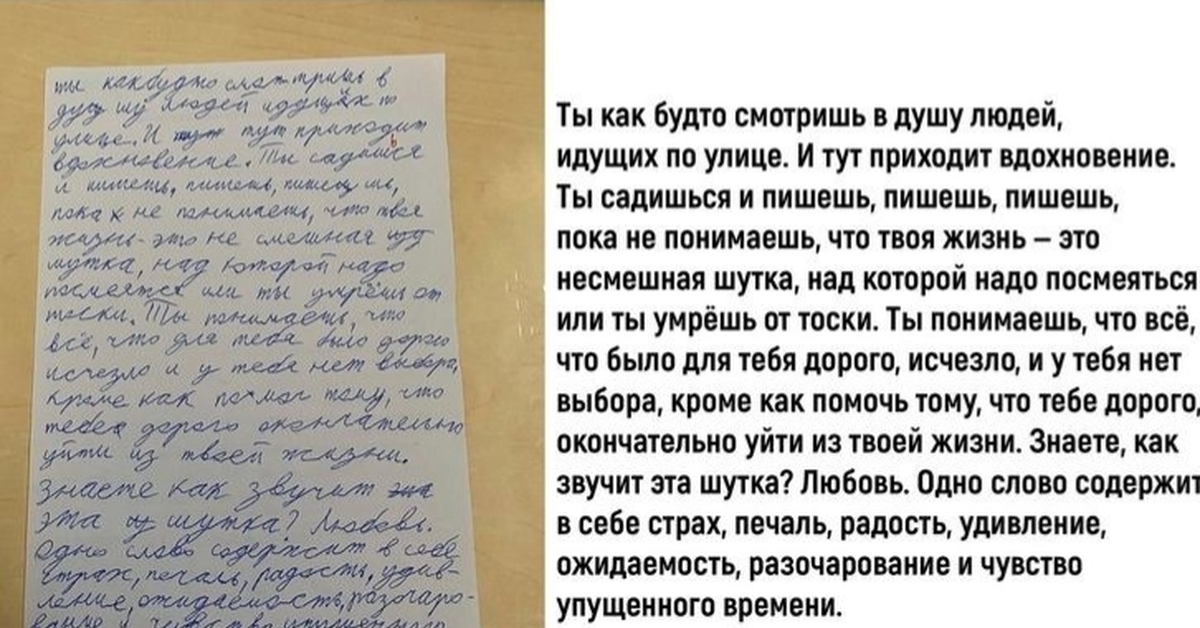 ты какбудто смотришь в
душу людей идущих по
улице. И тут приходит
вдохновение. Ты садишься
и пишешь, пишешь, пишешь,
пока не понимаешь, что твоя
жизнь - это не смешная
шутка, над которой надо
посмеятся или ты умрёшь от
тоски. Ты понимаешь, что
всё, что для тебя было дорого
исчезло и у тебя нет выбора,
кроме как тому, что
тебе дорого окончательно
уйти из твоей жизни.
Знаете как звучит
эта шутка? Любовь.
Одно слово содержит в себе
страх, печаль, радость, удив-
ление, ожидаемость, разочаро-
вание и чувство упущенного
Ты как будто смотришь в душу людей,
идущих по улице. И тут приходит вдохновение.
Ты садишься и пишешь, пишешь, пишешь,
пока не понимаешь, что твоя жизнь – это
несмешная шутка, над которой надо посмеяться
или ты умрёшь от тоски. Ты понимаешь, что всё,
что было для тебя дорого, исчезло, и у тебя нет
выбора, кроме как помочь тому, что тебе дорого,
окончательно уйти из твоей жизни. Знаете, как
звучит эта шутка? Любовь. Одно слово содержит
в себе страх, печаль, радость, удивление,
ожидаемость, разочарование и чувство
упущенного времени.